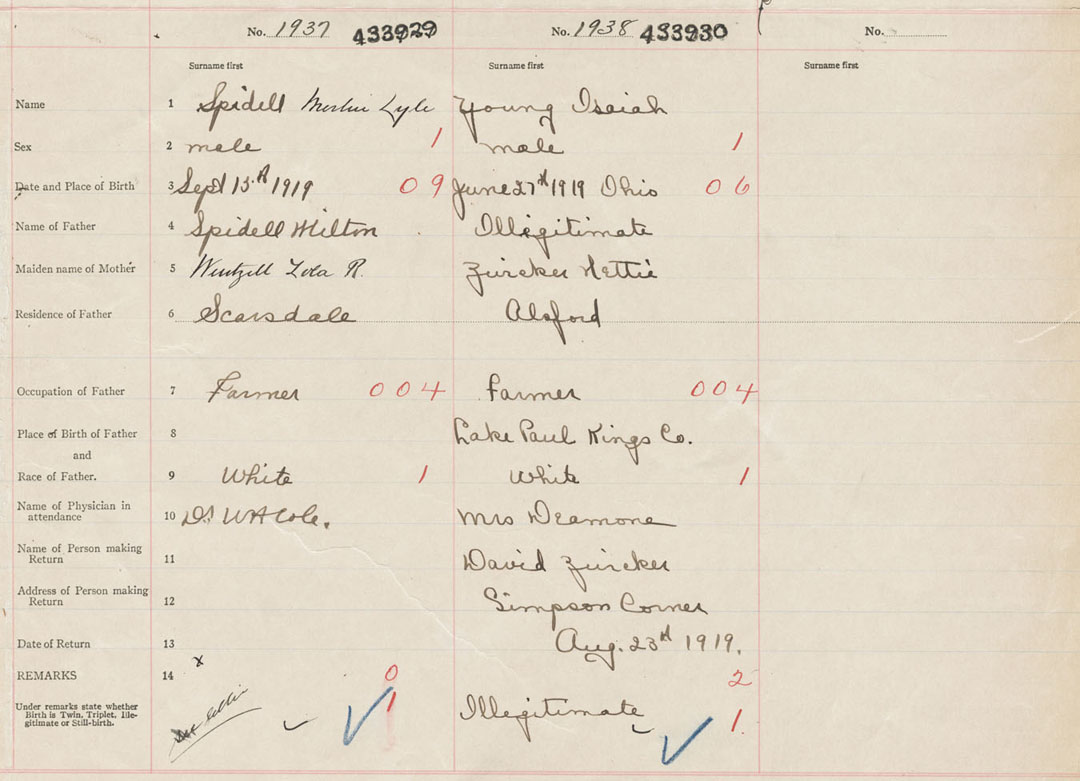 No. 1937 433929 No. 1938 433930 No.
Surname first Surname first Surname first
Name 1 Spidell Merlin Lyle Young Isaiah
Sex 2 male 1 male 1
Date and Place of Birth 3 Sept 15th 1919 09 June 27th 1919 Ohio 06
Name of Father 4 Spidell Milton Illegitimate
Maiden name of Mother 5 Wentzell Zola R. Zwicker Nettie
Residence of Father 6 Scarsdale
Occupation of Father 7 Farmer 004 Farmer 004
Place of Birth of Father 8 Lake Paul Kings Co.
and
Race of Father. 9 White 1 White 1
Name of Physician in
attendance 10 Dr W A Cole. Mrs Deamone
Name of Person making
Return 11 David Zwicker
Address of Person making
Return 12 Simpson Corner
Date of Return 13 Aug. 23rd 1919.
REMARKS 14 x 0 2
Under remarks state whether
Birth is Twin, Triplet, Ille-
gitimate or Still-birth. 1 Illegitimate 1